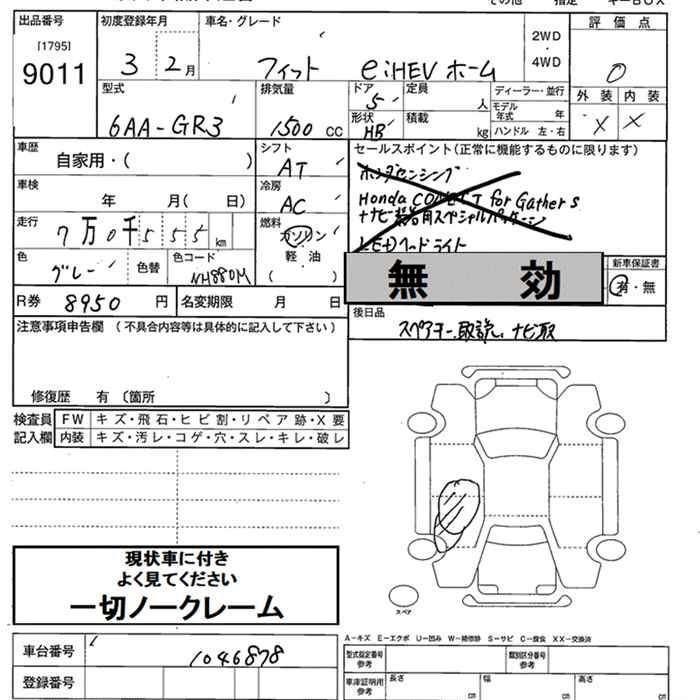 その他 指定 キーBOX
出品番号 初度登録年月 車名・グレード 評価点
[1795]
9011
3 2月 フィット e:HEV ホーム
2WD
・
4WD
0
型式 排気量 ドア 定員 ディーラー・並行 外装 内装
6AA-GR3 1500 CC 5 人 モデル年式 年 X X
形状 積載
HB kg ハンドル 左・右
車歴 シフト セールスポイント(正常に機能するものに限ります)
自家用・( ) AT ホンダセンシング
車検 冷房 Honda CONECT for Gathers
年 月( 日) AC ナビ装着用スペシャルパッケージ
走行 燃料
7万0千555km ガソリン LEDヘッドライト
色 色替 色コード 軽油
グレー NH880M ( )
無効
新車保証書
有・無
R券 8950 円 名変期限 月 日
後日品
スペアキー、取説、ナビ取
注意事項申告欄 (不具合内容等は具体的に記入して下さい)
修復歴 有 〔箇所 〕
検査員 FW キズ・飛石・ヒビ割・リペア跡・X要
記入欄 内装 キズ・汚レ・コゲ・穴・スレ・キレ・破レ
現状車に付き
よく見てください
一切ノークレーム
スペア
A-キズ E-エクボ U-凹み W-補修跡 S-サビ C-腐食 XX-交換済
車台番号 1046878
型式指定番号 参考 類別区分番号 参考
登録番号
車庫証明用 参考 長さ cm 幅 cm 高さ cm